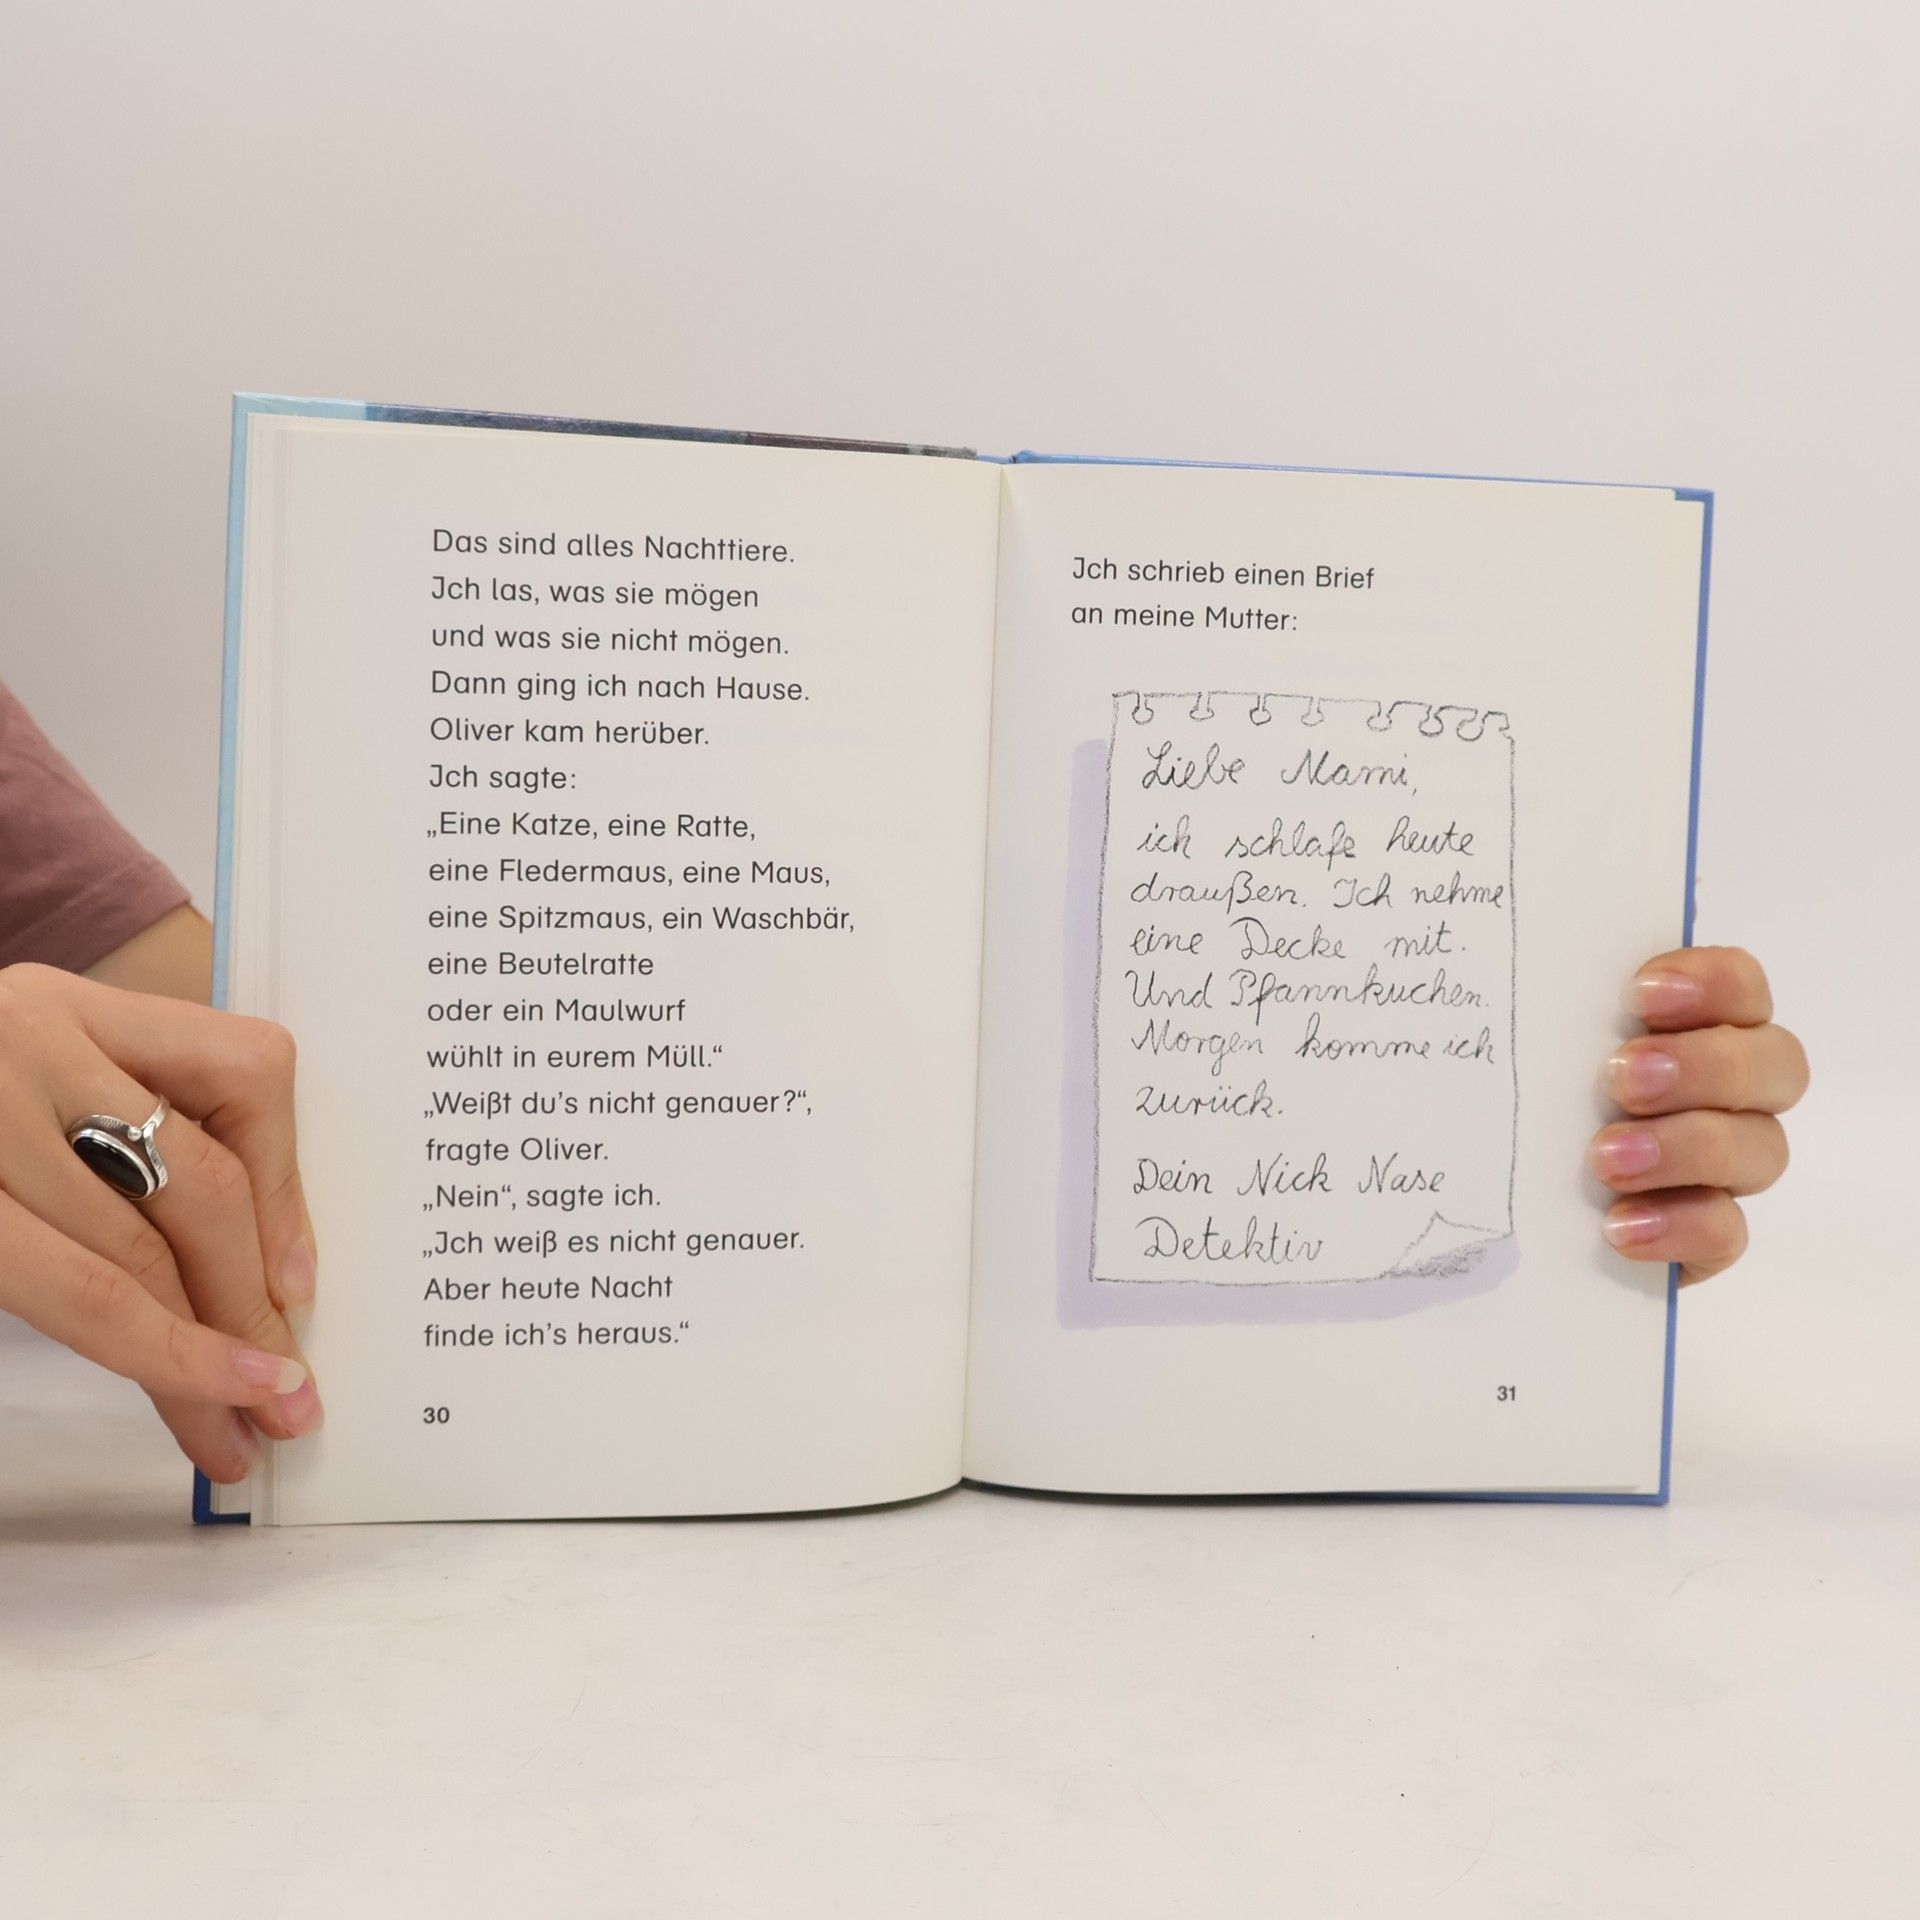 Das sind alles Nachttiere.
Jch las, was sie mögen
und was sie nicht mögen.
Dann ging ich nach Hause.
Oliver kam herüber.
Jch sagte:
„Eine Katze, eine Ratte,
eine Fledermaus, eine Maus,
eine Spitzmaus, ein Waschbär,
eine Beutelratte
oder ein Maulwurf
wühlt in eurem Müll.“
„Weißt du’s nicht genauer?“,
fragte Oliver.
„Nein“, sagte ich.
„Jch weiß es nicht genauer.
Aber heute Nacht
finde ich’s heraus.“
30
Jch schrieb einen Brief
an meine Mutter:
Liebe Mami,
ich schlafe heute
draußen. Ich nehme
eine Decke mit.
Und Pfannkuchen.
Morgen komme ich
zurück.
Dein Nick Nase
Detektiv
31